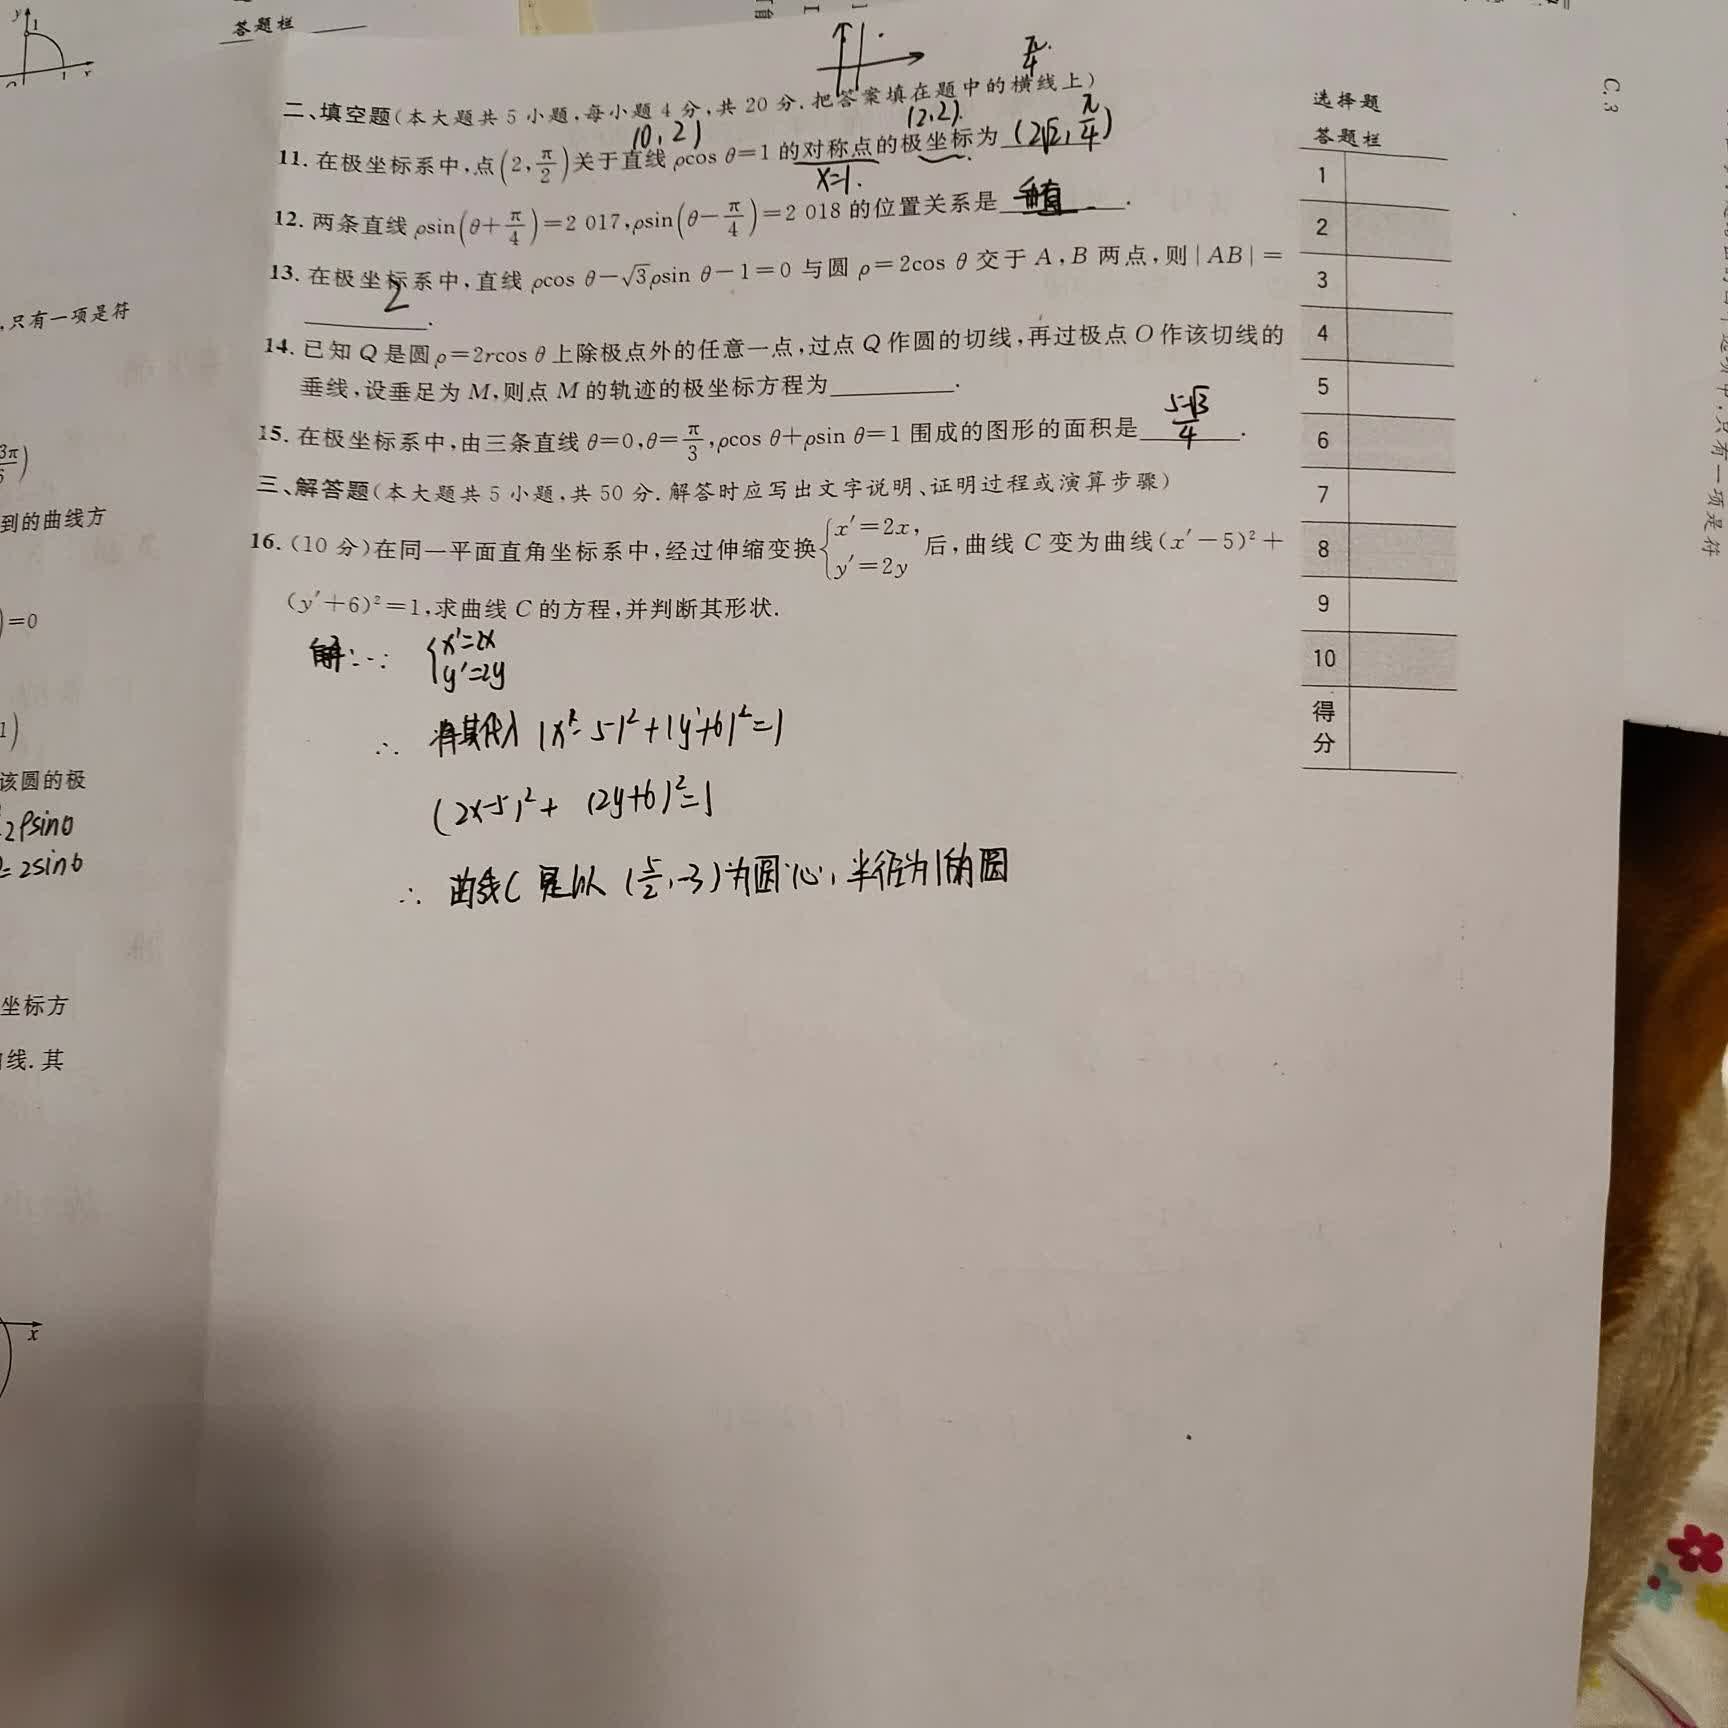 答题栏
二、填空题(本大题共5小题,每小题4分,共20分.把答案填在题中的横线上)
π/4
(0,2)
(2,2).
11.在极坐标系中,点(2,π/2)关于直线ρcos θ=1的对称点的极坐标为(2√2,π/4)
x=1.
12.两条直线ρsin(θ+π/4)=2 017,ρsin(θ-π/4)=2 018的位置关系是垂直.
13.在极坐标系中,直线ρcos θ-√3ρsin θ-1=0与圆ρ=2cos θ交于A,B两点,则|AB|=
2.
14.已知Q是圆ρ=2rcos θ上除极点外的任意一点,过点Q作圆的切线,再过极点O作该切线的
垂线,设垂足为M,则点M的轨迹的极坐标方程为________.
15.在极坐标系中,由三条直线θ=0,θ=π/3,ρcos θ+ρsin θ=1围成的图形的面积是 .
三、解答题(本大题共5小题,共50分.解答时应写出文字说明、证明过程或演算步骤)
16.(10分)在同一平面直角坐标系中,经过伸缩变换{x′=2x, y′=2y后,曲线C变为曲线(x′-5)²+
(y′+6)²=1,求曲线C的方程,并判断其形状.
解:∵ {x′=2x
y′=2y
∴ 将其代入(x′-5)²+(y′+6)²=1
(2x-5)²+(2y+6)²=1
∴ 曲线C是以(5/2,-3)为圆心,半径为1的圆
选择题
答题栏
1
2
3
4
5
6
7
8
9
10
得
分
C.3
y
1
1
x
,只有一项是符
到的曲线方
)=0
1)
该圆的极
2ρsinθ
=2sinθ
坐标方
线.其
x
只有一项是符